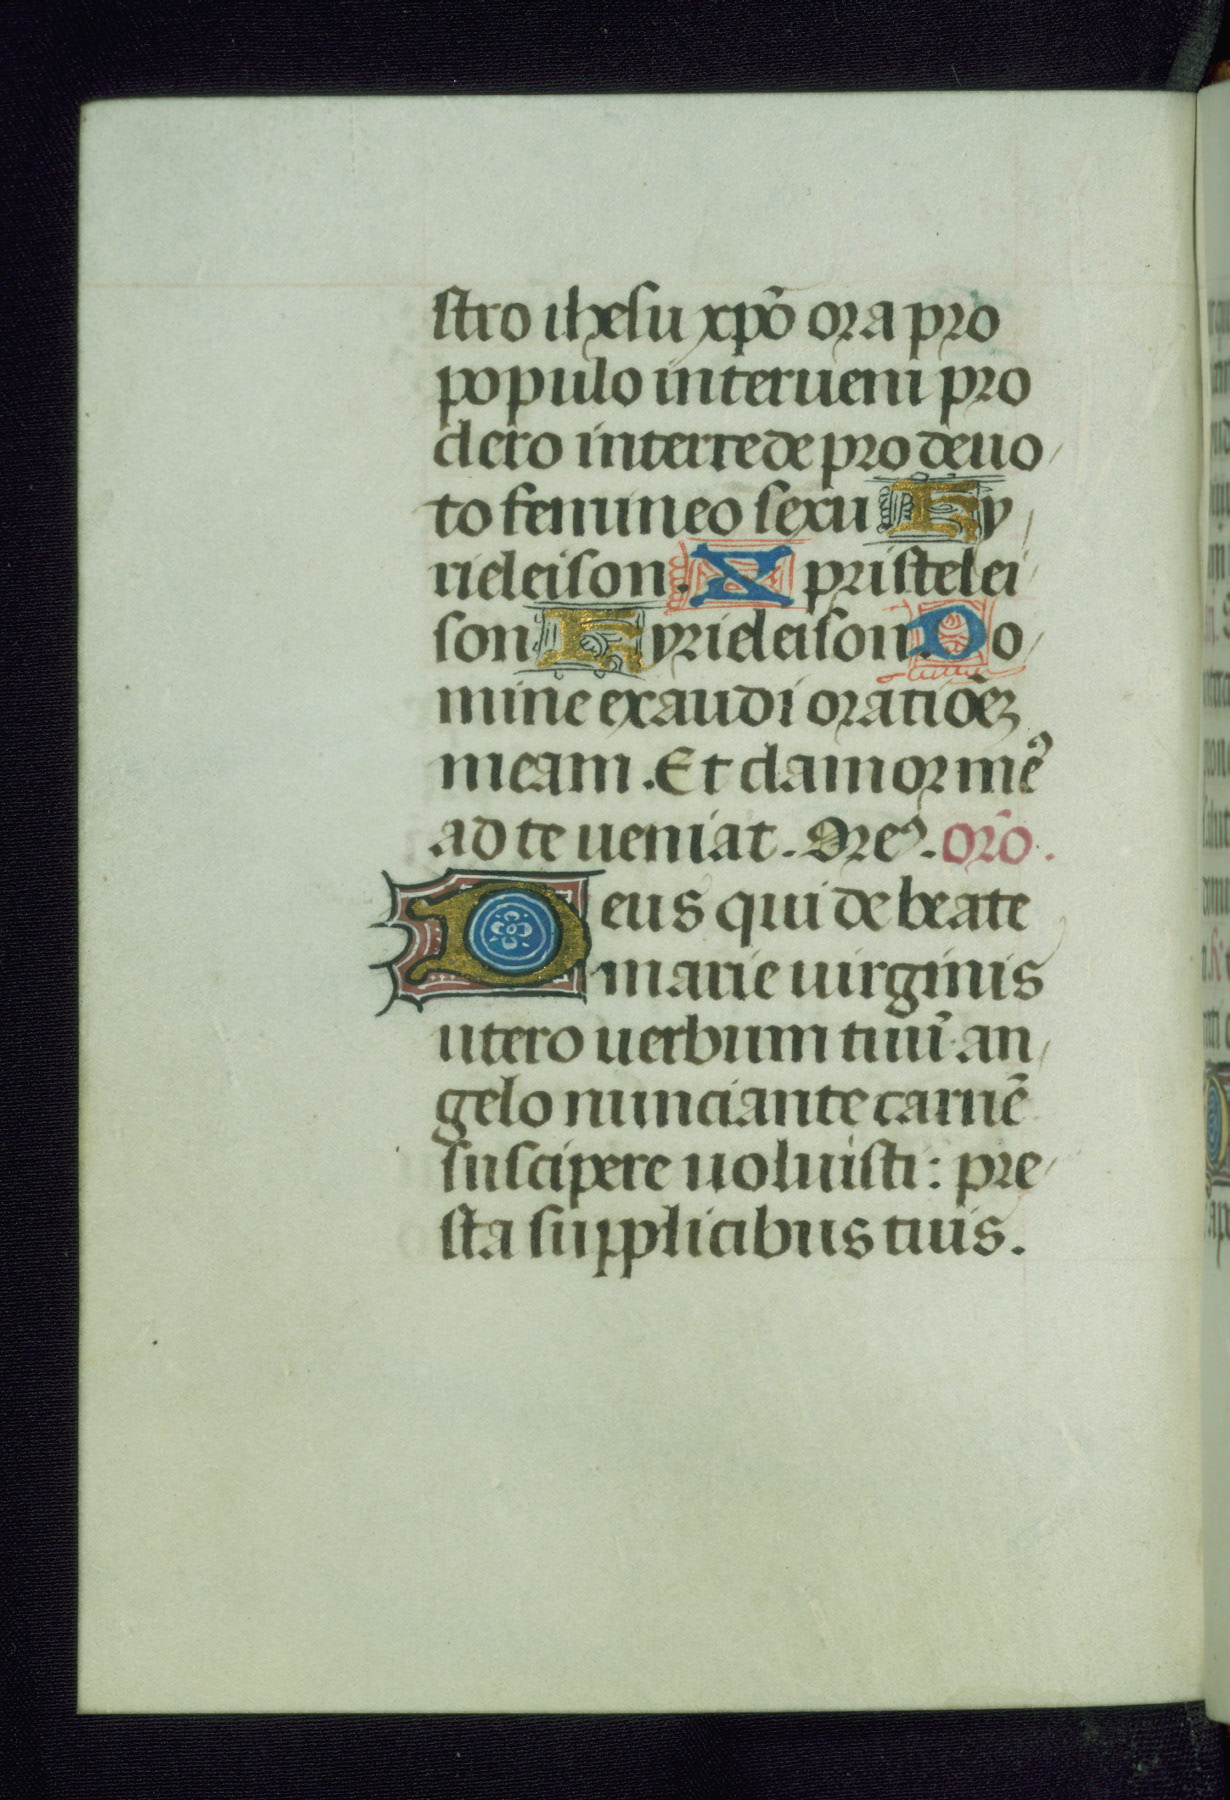 stro ihesu xpõ ora pro
populo interueni pro
clero intercede pro deuo
to femineo sexu Ky
rieleison. Xpristelei
son Kyrieleison. Do
mine exaudi oratiõeʒ
meam. Et clamor meꝰ
ad te ueniat. Oreꝰ. orõ.
Deus qui de beate
marie uirginis
utero uerbum tuũ an
gelo nunciante carnẽ
suscipere uoluisti: pre
sta supplicibus tuis.